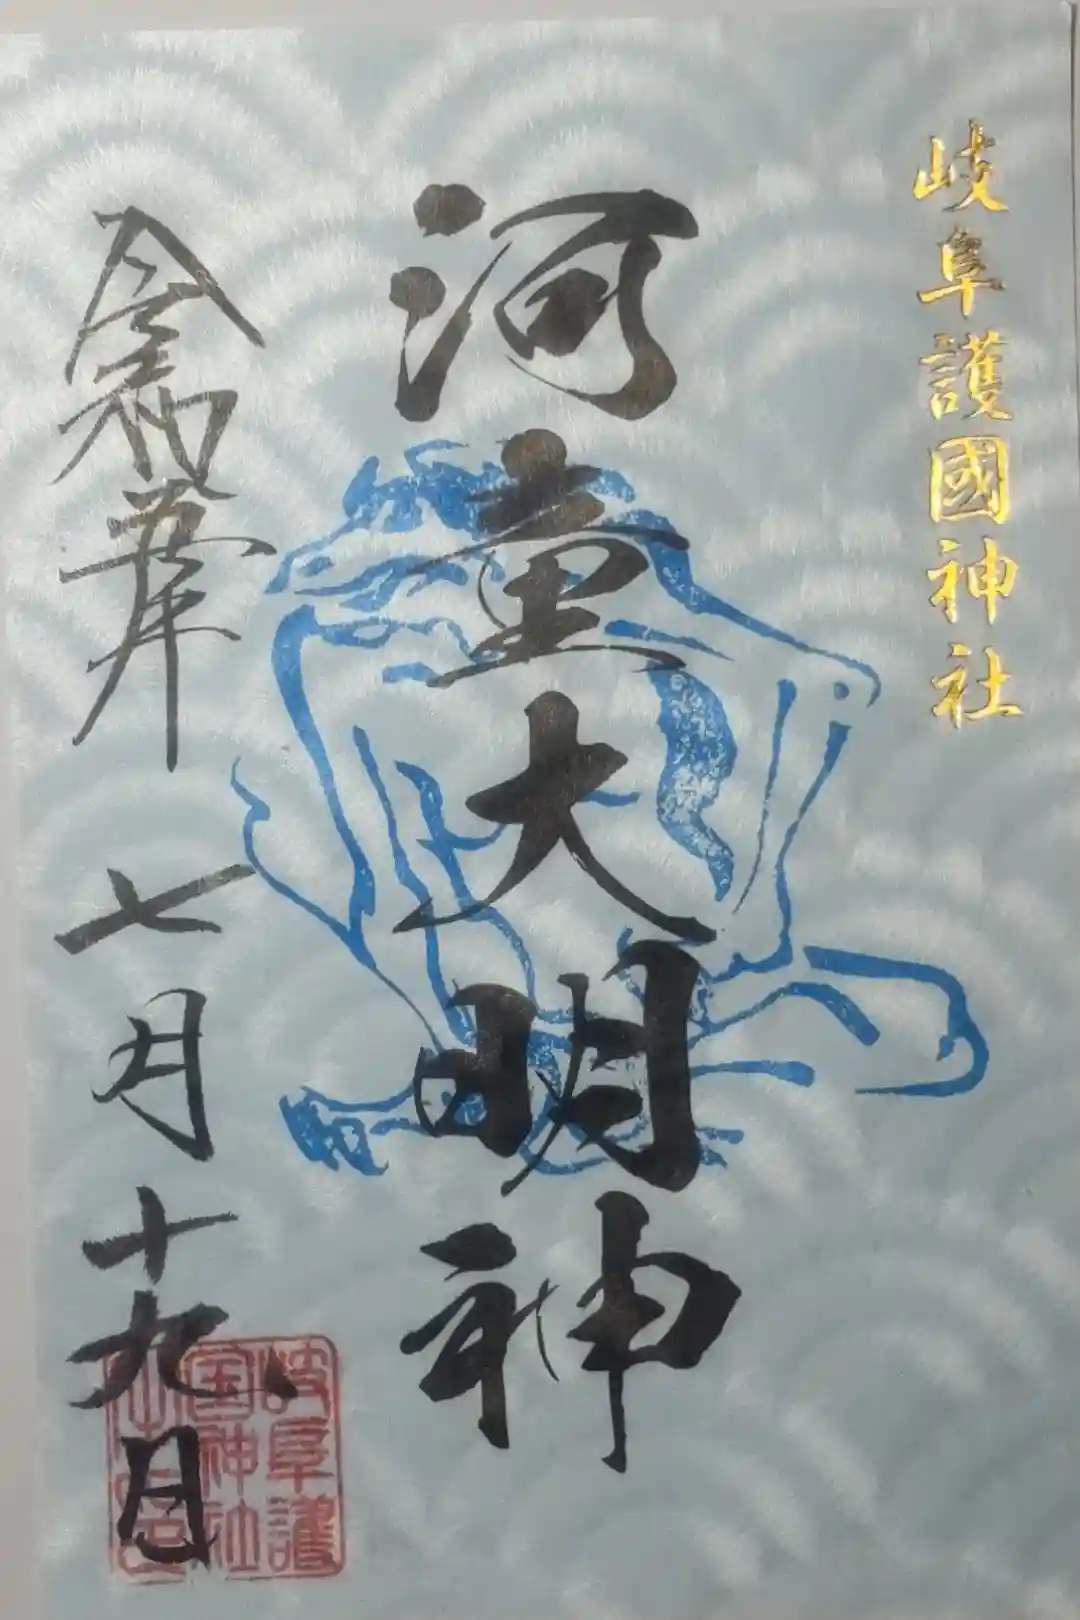 岐阜護國神社
河童大明神
令和五年 七月 十九日
岐阜護
国神社
之印